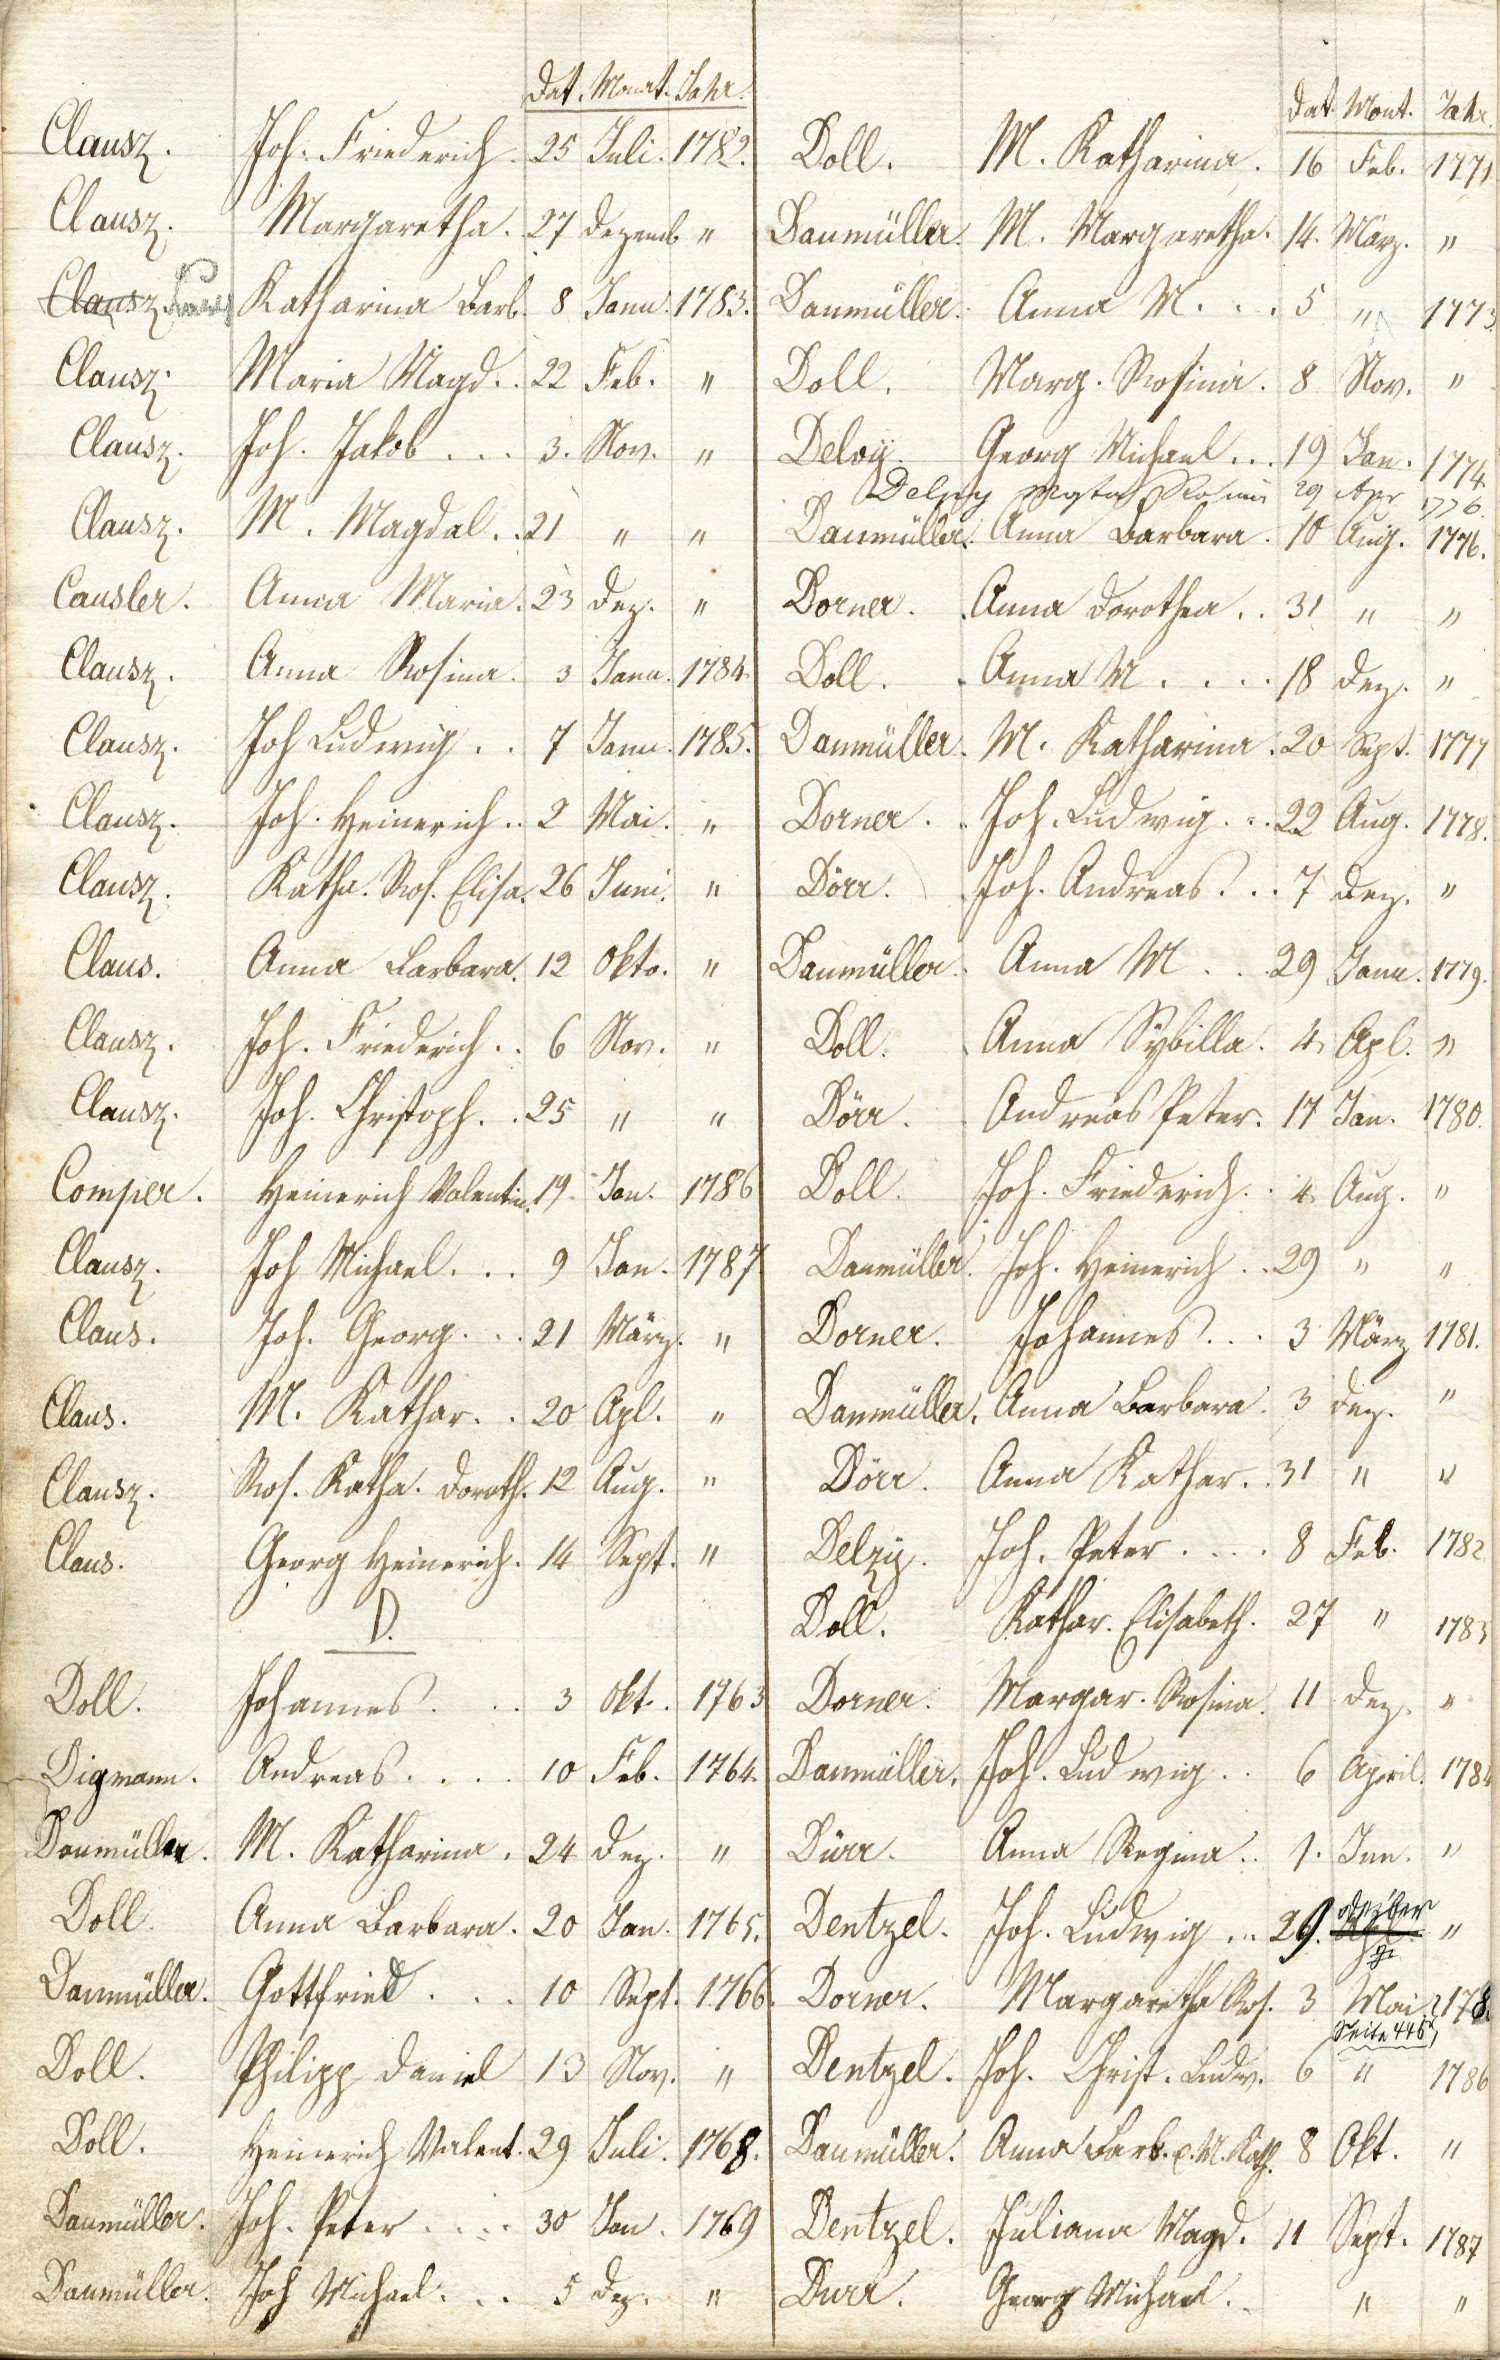 Dat. Monat. Jahr.
Clausz. Joh. Friederich. 25 Juli. 1782.
Clausz. Margaretha. 27 Dezemb "
Clausz. Katharina Barb. 8 Janu. 1783.
Clausz. Maria Magd. . 22 Feb. "
Clausz. Joh. Jakob . . . 3. Nov. "
Clausz. M. Magdal. . 21 " "
Causler. Anna Maria. 23 Dez. "
Clausz. Anna Rosina. 3 Janu. 1784.
Clausz. Joh Ludwig . . 7 Janu. 1785.
Clausz. Joh. Heinerich . . 2 Mai. "
Clausz. Katha. Ros. Elisa. 26 Juni. "
Claus. Anna Barbara. 12 Okto. "
Clausz. Joh. Friederich . . 6 Nov. "
Clausz. Joh. Christoph. . 25 " "
Comper. Heinerich Valentin. 19. Jan. 1786
Clausz. Joh Michael. . . 9 Jan. 1787
Claus. Joh. Georg. . . 21 März. "
Claus. M. Kathar. . 20 Apl. "
Clausz. Ros. Katha. Doroth. 12 Aug. "
Claus. Georg Heinerich. 14 Sept. "
D.
Doll. Johannes . . . 3 Okt. 1763
Digmann. Andreas . . . . 10 Feb. 1764.
Danmüller. M. Katharina. 24 Dez. "
Doll. Anna Barbara. 20 Jan. 1765.
Danmüller. Gottfried . . . 10 Sept. 1766.
Doll. Philipp Daniel 13 Nov. "
Doll. Heinerich Valent. 29 Juli. 1768.
Danmüller. Joh. Peter . . . . 30 Jan. 1769
Danmüller. Joh Michael. . . 5 Dez. "
Dat. Mont. Jahr.
Doll. M. Katharina. 16 Feb. 1771
Danmüller. M. Margaretha. 14. März. "
Danmüller. Anna M. . . . 5 " 1773.
Doll. Marg. Rosina. 8 Nov. "
Deloy. Georg Michael . . . 19 Jan. 1774.
Delzy Rosina 29 Apr 1776.
Danmüller. Anna Barbara. 10 Aug. 1776.
Dorner. Anna Dorothea . . 31 " "
Doll. Anna M . . . . 18 Dez. "
Danmüller. M. Katharina. 20 Sept. 1777
Dorner. Joh. Ludwig. . . 22 Aug. 1778.
Dörr. Joh. Andreas. . . 7 Dez. "
Danmüller. Anna M . . . 29 Janu. 1779.
Doll. Anna Sybilla. 4. Apl. "
Dörr. Andreas Peter. 17 Jan. 1780.
Doll. Joh. Friederich. . 4. Aug. "
Danmüller. Joh. Heinerich . . 29 " "
Dorner. Johannes . . . 3 März 1781.
Danmüller. Anna Barbara. 3 Dez. "
Dörr. Anna Kathar. . 31 " "
Delzy. Joh. Peter . . . . 8 Feb. 1782
Doll. Kathar. Elisabeth. 27 " 1783
Dorner. Margar. Rosina. 11 Dez. "
Danmüller. Joh. Ludwig . . 6 April. 1784
Dürr. Anna Regina . . 1. Jun. "
Dentzel. Joh. Ludwig . . 29. "
Dorner. Margaretha Ros. 3 Mai
Seite 445
Dentzel. Joh. Christ. Ludw. 6 " 1786
Danmüller. Anna Barb. e. M. Kath. 8 Okt. "
Dentzel. Juliana Magd. 11 Sept. 1787
Durr. Georg Michael. . " "